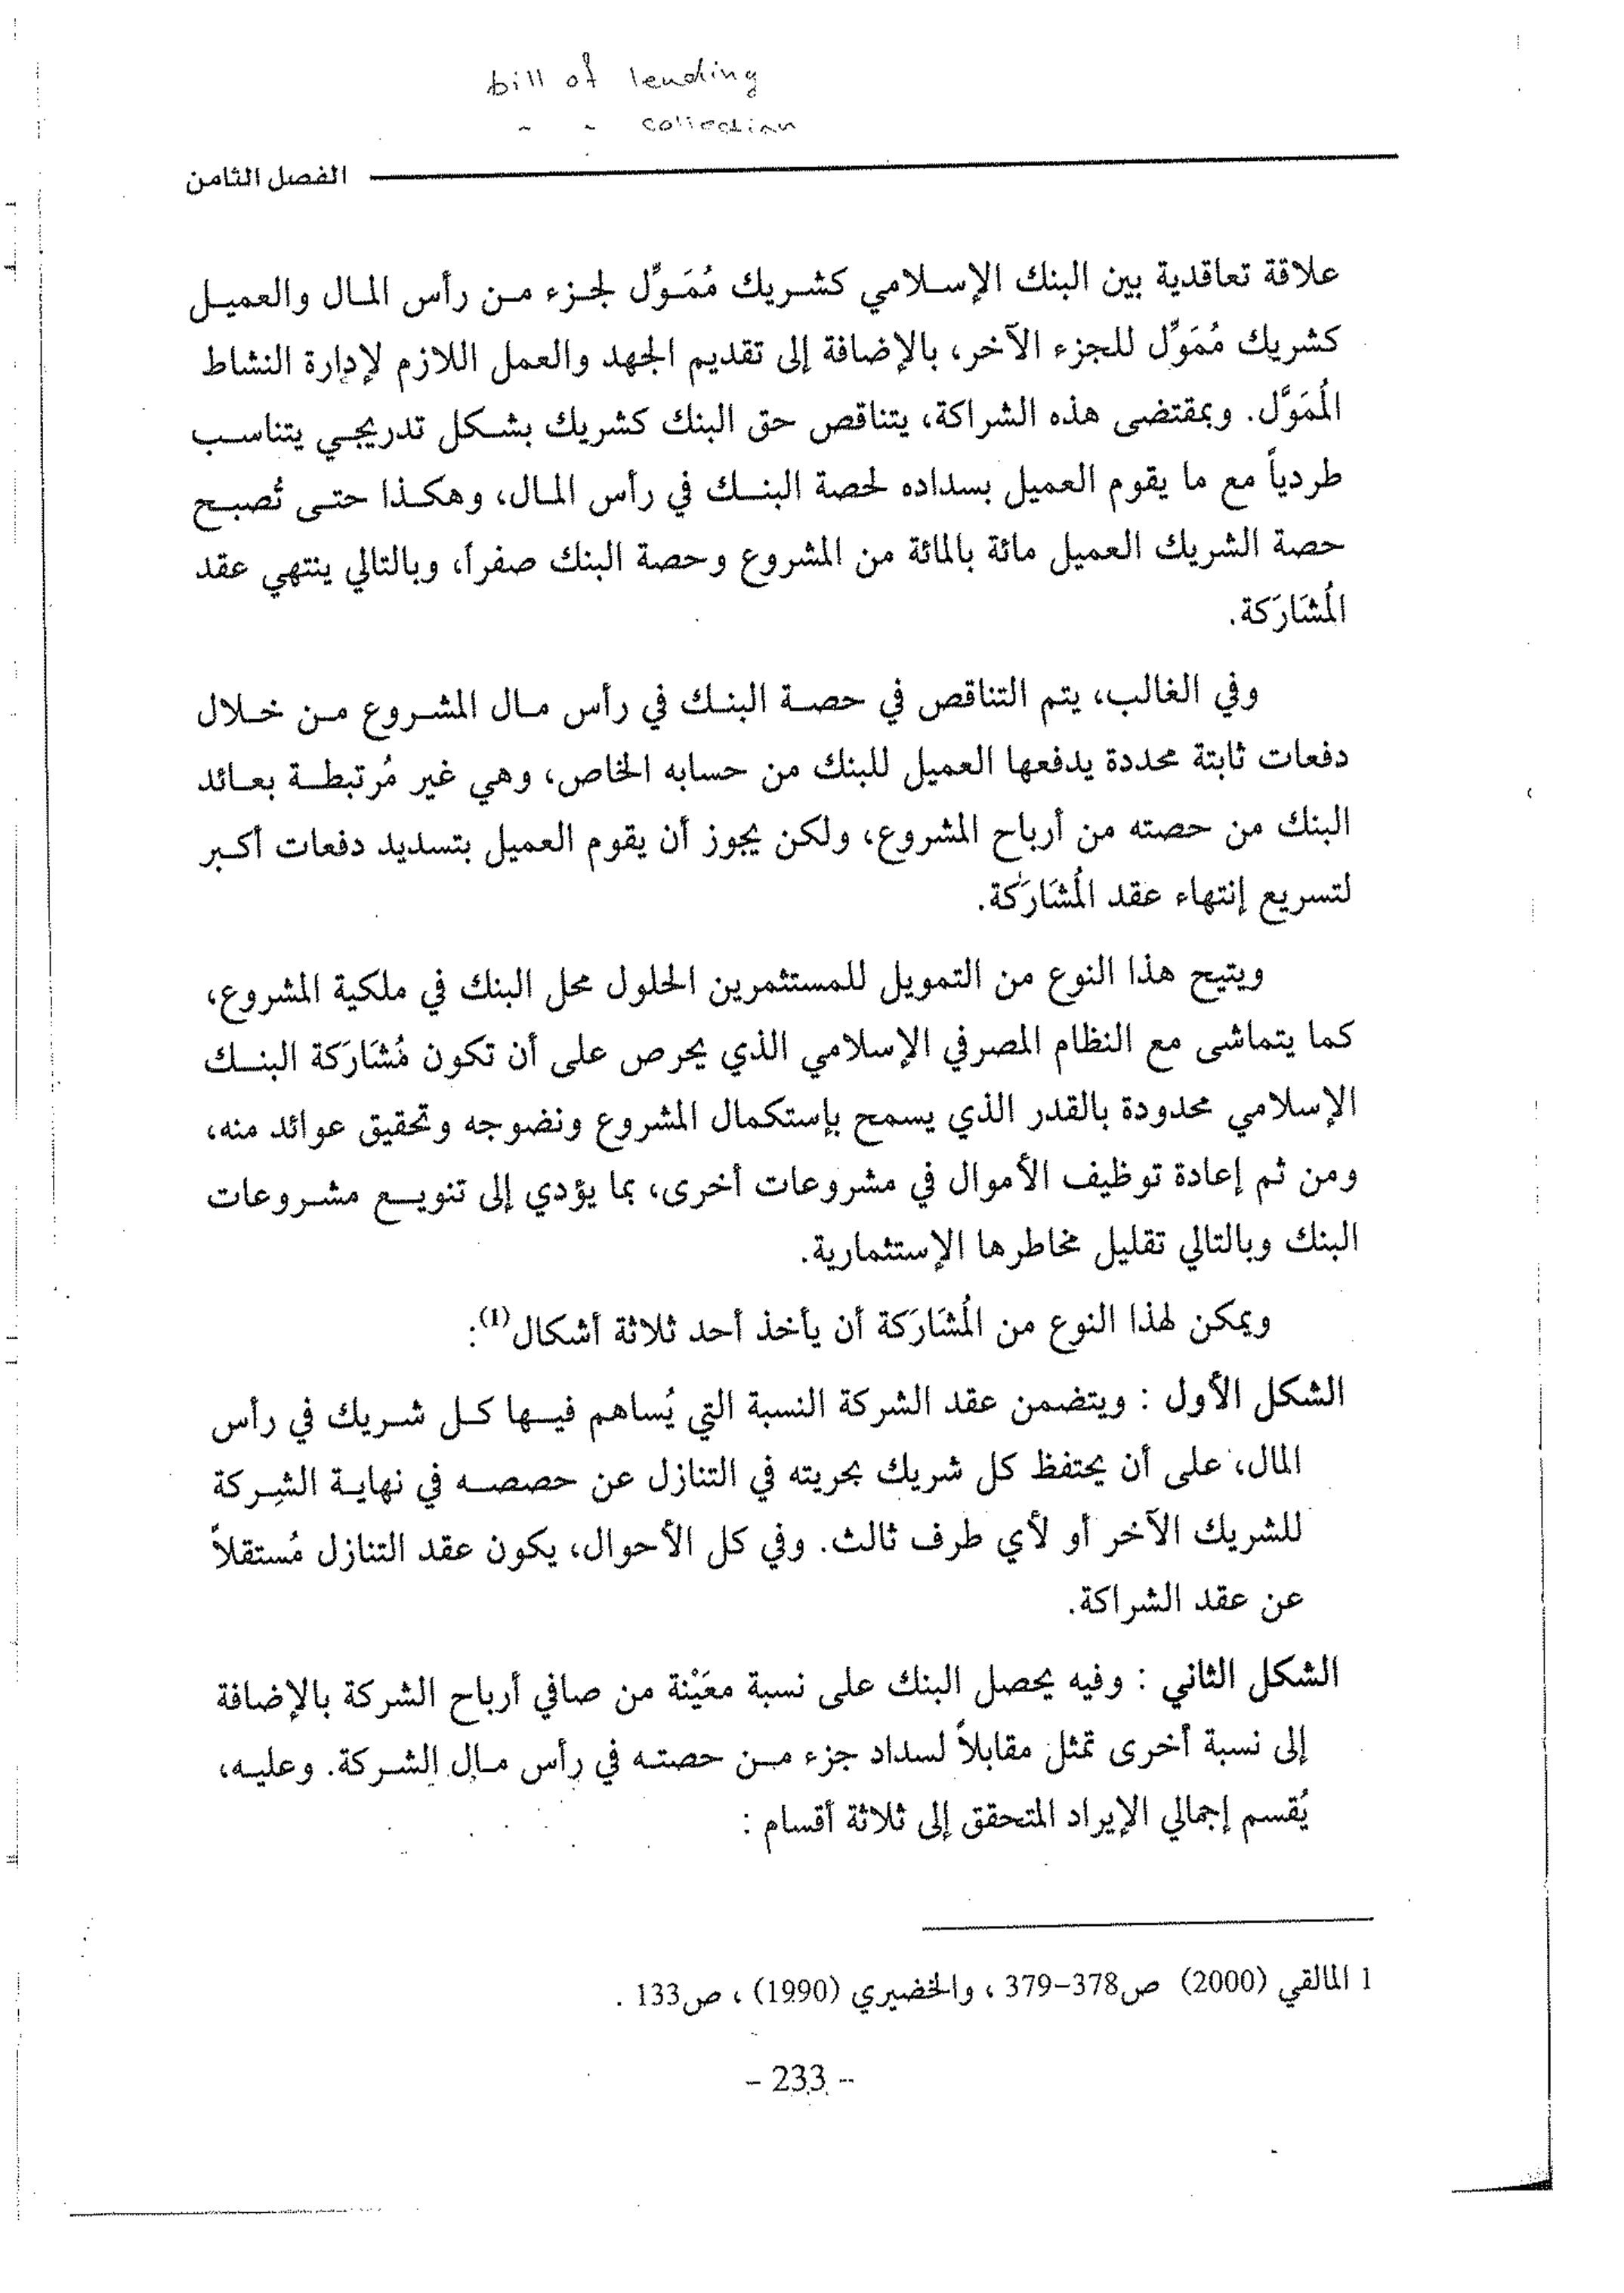 bill of lending
~ ~ collection
الفصل الثامن
علاقة تعاقدية بين البنك الإسلامي كشريك مُمَوِّل لجزء من رأس المال والعميل
كشريك مُمَوِّل للجزء الآخر، بالإضافة إلى تقديم الجهد والعمل اللازم لإدارة النشاط
المُمَوَّل. وبمقتضى هذه الشراكة، يتناقص حق البنك كشريك بشكل تدريجي يتناسب
طردياً مع ما يقوم العميل بسداده لحصة البنك في رأس المال، وهكذا حتى تُصبح
حصة الشريك العميل مائة بالمائة من المشروع وحصة البنك صفراً، وبالتالي ينتهي عقد
المُشَارَكة.
وفي الغالب، يتم التناقص في حصة البنك في رأس مال المشروع من خلال
دفعات ثابتة محددة يدفعها العميل للبنك من حسابه الخاص، وهي غير مُرتبطة بعائد
البنك من حصته من أرباح المشروع، ولكن يجوز أن يقوم العميل بتسديد دفعات أكبر
لتسريع إنتهاء عقد المُشَارَكة.
ويتيح هذا النوع من التمويل للمستثمرين الحلول محل البنك في ملكية المشروع،
كما يتماشى مع النظام المصرفي الإسلامي الذي يحرص على أن تكون مُشَارَكة البنك
الإسلامي محدودة بالقدر الذي يسمح بإستكمال المشروع ونضوجه وتحقيق عوائد منه،
ومن ثم إعادة توظيف الأموال في مشروعات أخرى، بما يؤدي إلى تنويع مشروعات
البنك وبالتالي تقليل مخاطرها الإستثمارية.
ويمكن لهذا النوع من المُشَارَكة أن يأخذ أحد ثلاثة أشكال(1):
الشكل الأول : ويتضمن عقد الشركة النسبة التي يُساهم فيها كل شريك في رأس
المال، على أن يحتفظ كل شريك بحريته في التنازل عن حصصه في نهاية الشِركة
للشريك الآخر أو لأي طرف ثالث. وفي كل الأحوال، يكون عقد التنازل مُستقلاً
عن عقد الشراكة.
الشكل الثاني : وفيه يحصل البنك على نسبة معَيْنة من صافي أرباح الشركة بالإضافة
إلى نسبة أخرى تمثل مقابلاً لسداد جزء من حصته في رأس مال الشركة. وعليه،
يُقسم إجمالي الإيراد المتحقق إلى ثلاثة أقسام :
1 المالقي (2000) ص378-379 ، والخضيري (1990) ، ص133 .
- 233 -